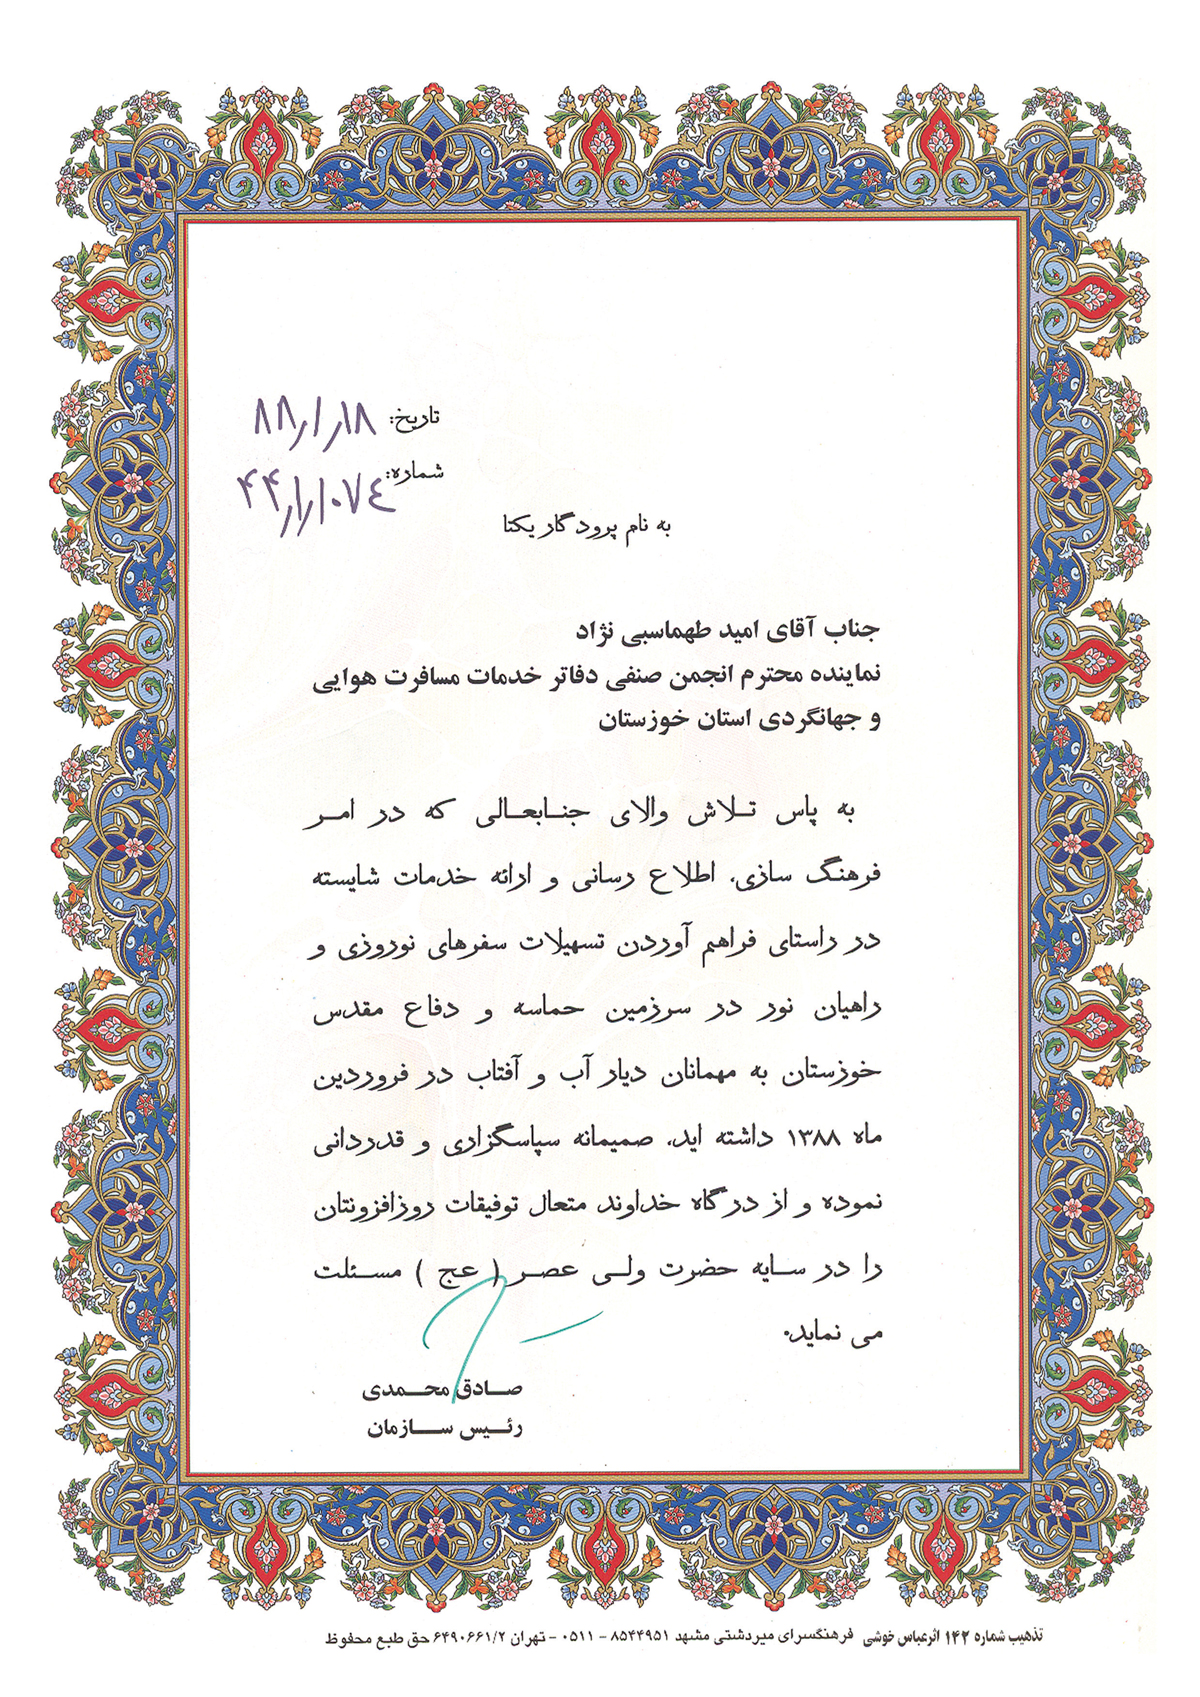 تاریخ: ۸۸/۱/۱۸
شماره: ۴۴/۱/۱۰۷۴
به نام پرودگار یکتا
جناب آقای امید طهماسبی نژاد
نماینده محترم انجمن صنفی دفاتر خدمات مسافرت هوایی
و جهانگردی استان خوزستان
به پاس تلاش والای جنابعالی که در امر
فرهنگ سازی، اطلاع رسانی و ارائه خدمات شایسته
در راستای فراهم آوردن تسهیلات سفرهای نوروزی و
راهیان نور در سرزمین حماسه و دفاع مقدس
خوزستان به مهمانان دیار آب و آفتاب در فروردین
ماه ۱۳۸۸ داشته اید، صمیمانه سپاسگزاری و قدردانی
نموده و از درگاه خداوند متعال توفیقات روزافزونتان
را در سایه حضرت ولی عصر ( عج ) مسئلت
می نماید.
صادق محمدی
رئیس سازمان
تذهیب شماره ۱۴۲ اثرعباس خوشی فرهنگسرای میردشتی مشهد ۸۵۴۴۹۵۱ - ۰۵۱۱ - تهران ۶۴۹۰۶۶۱/۲ حق طبع محفوظ